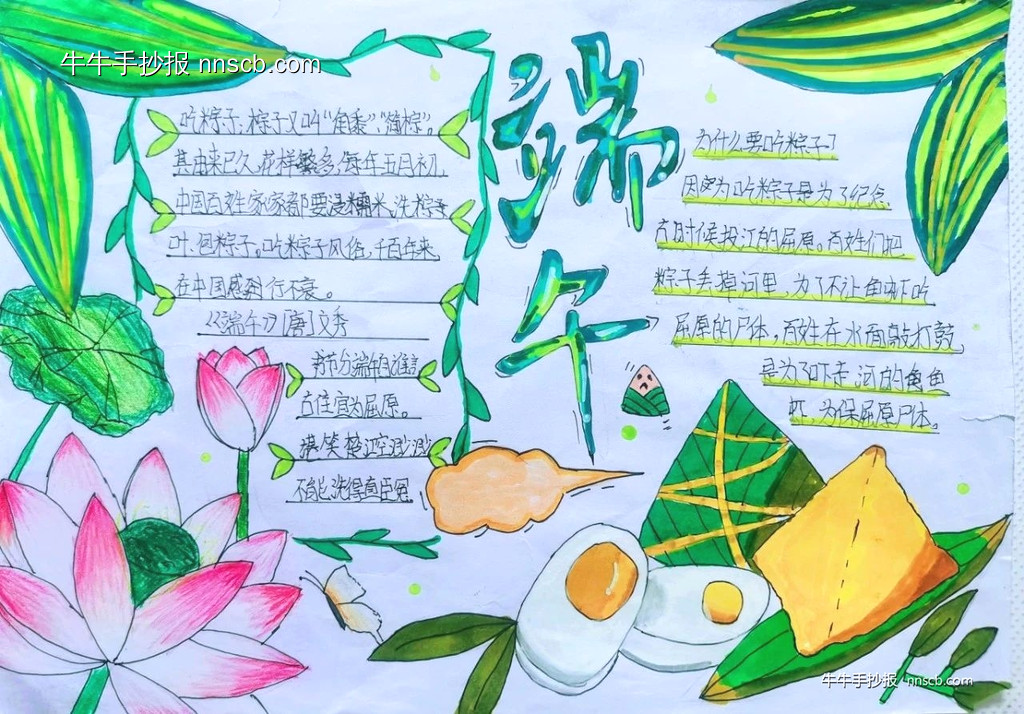 牛牛手抄报 nnscb.com
端午
吃粽子:粽子又叫“角黍”、“筒粽”。
其由来已久,花样繁多,每年五月初,
中国百姓家家都要浸糯米,洗粽
叶,包粽子。吃粽子风俗,千百年来
在中国盛行不衰。
《端午》[唐]文秀
节分端午自谁言
万古为屈原。
笑楚江空渺渺
不能洗得直臣冤
为什么要吃粽子?
因为吃粽子是为了纪念
古时候投江的屈原。百姓们把
粽子丢掉河里,为了不让鱼虾吃
屈原的尸体,百姓在水面敲打鼓
是为了吓走河的鱼
虾,为保屈原尸体。
牛牛手抄报 nnscb.com